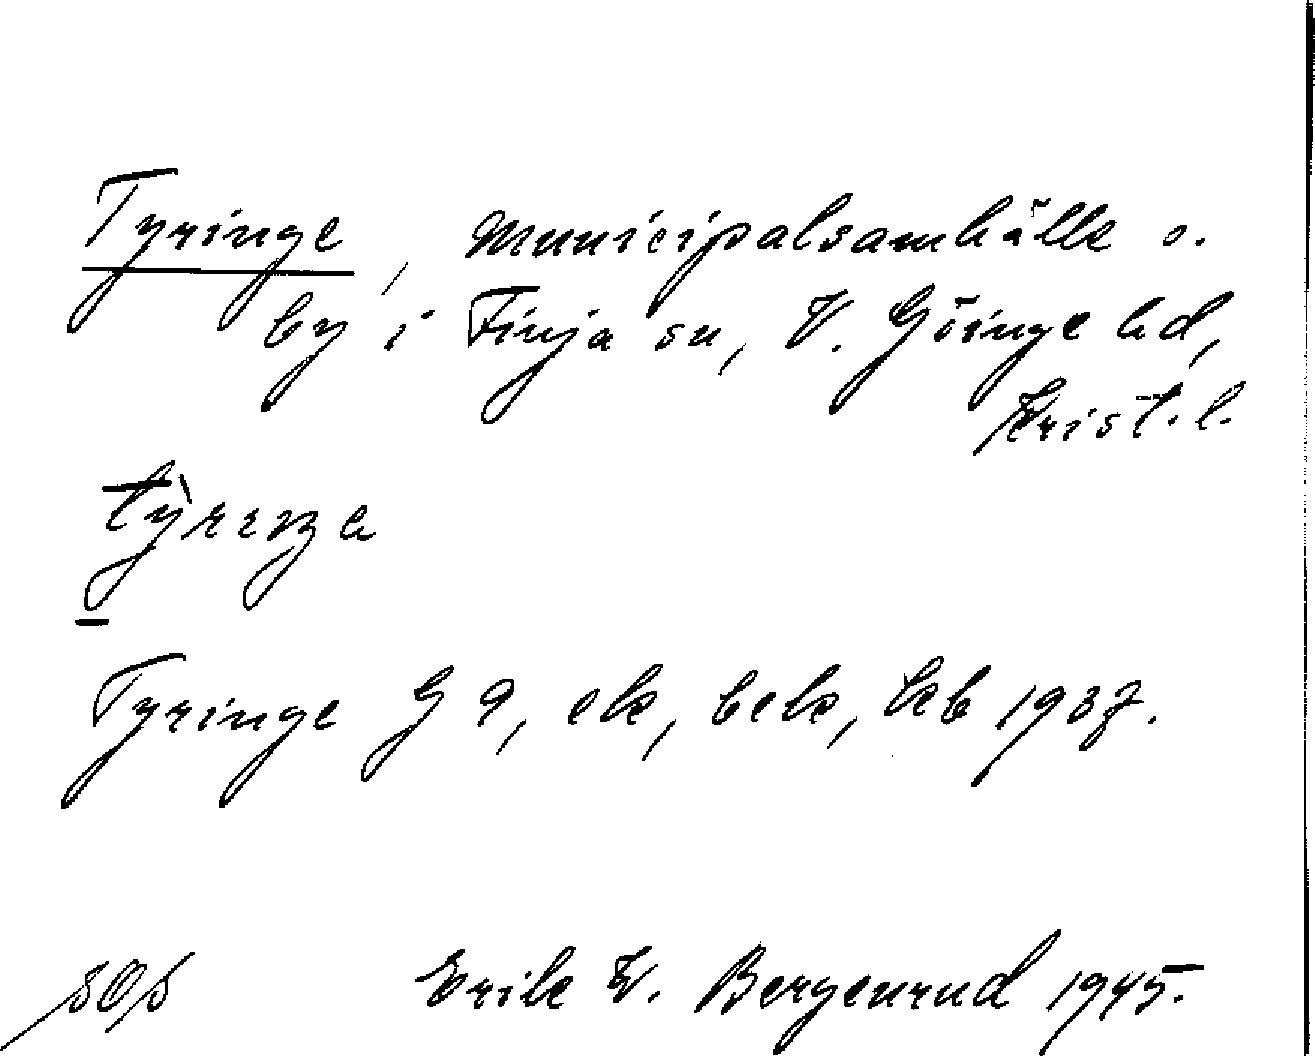 Tyringe, Municipalsamhälle o.
by i Finja sn, V. Göinge hd,
Krist. l.
Tyringe G 9, ek, bebl, kb 1937.
Erik K. Bergenrud 1945.